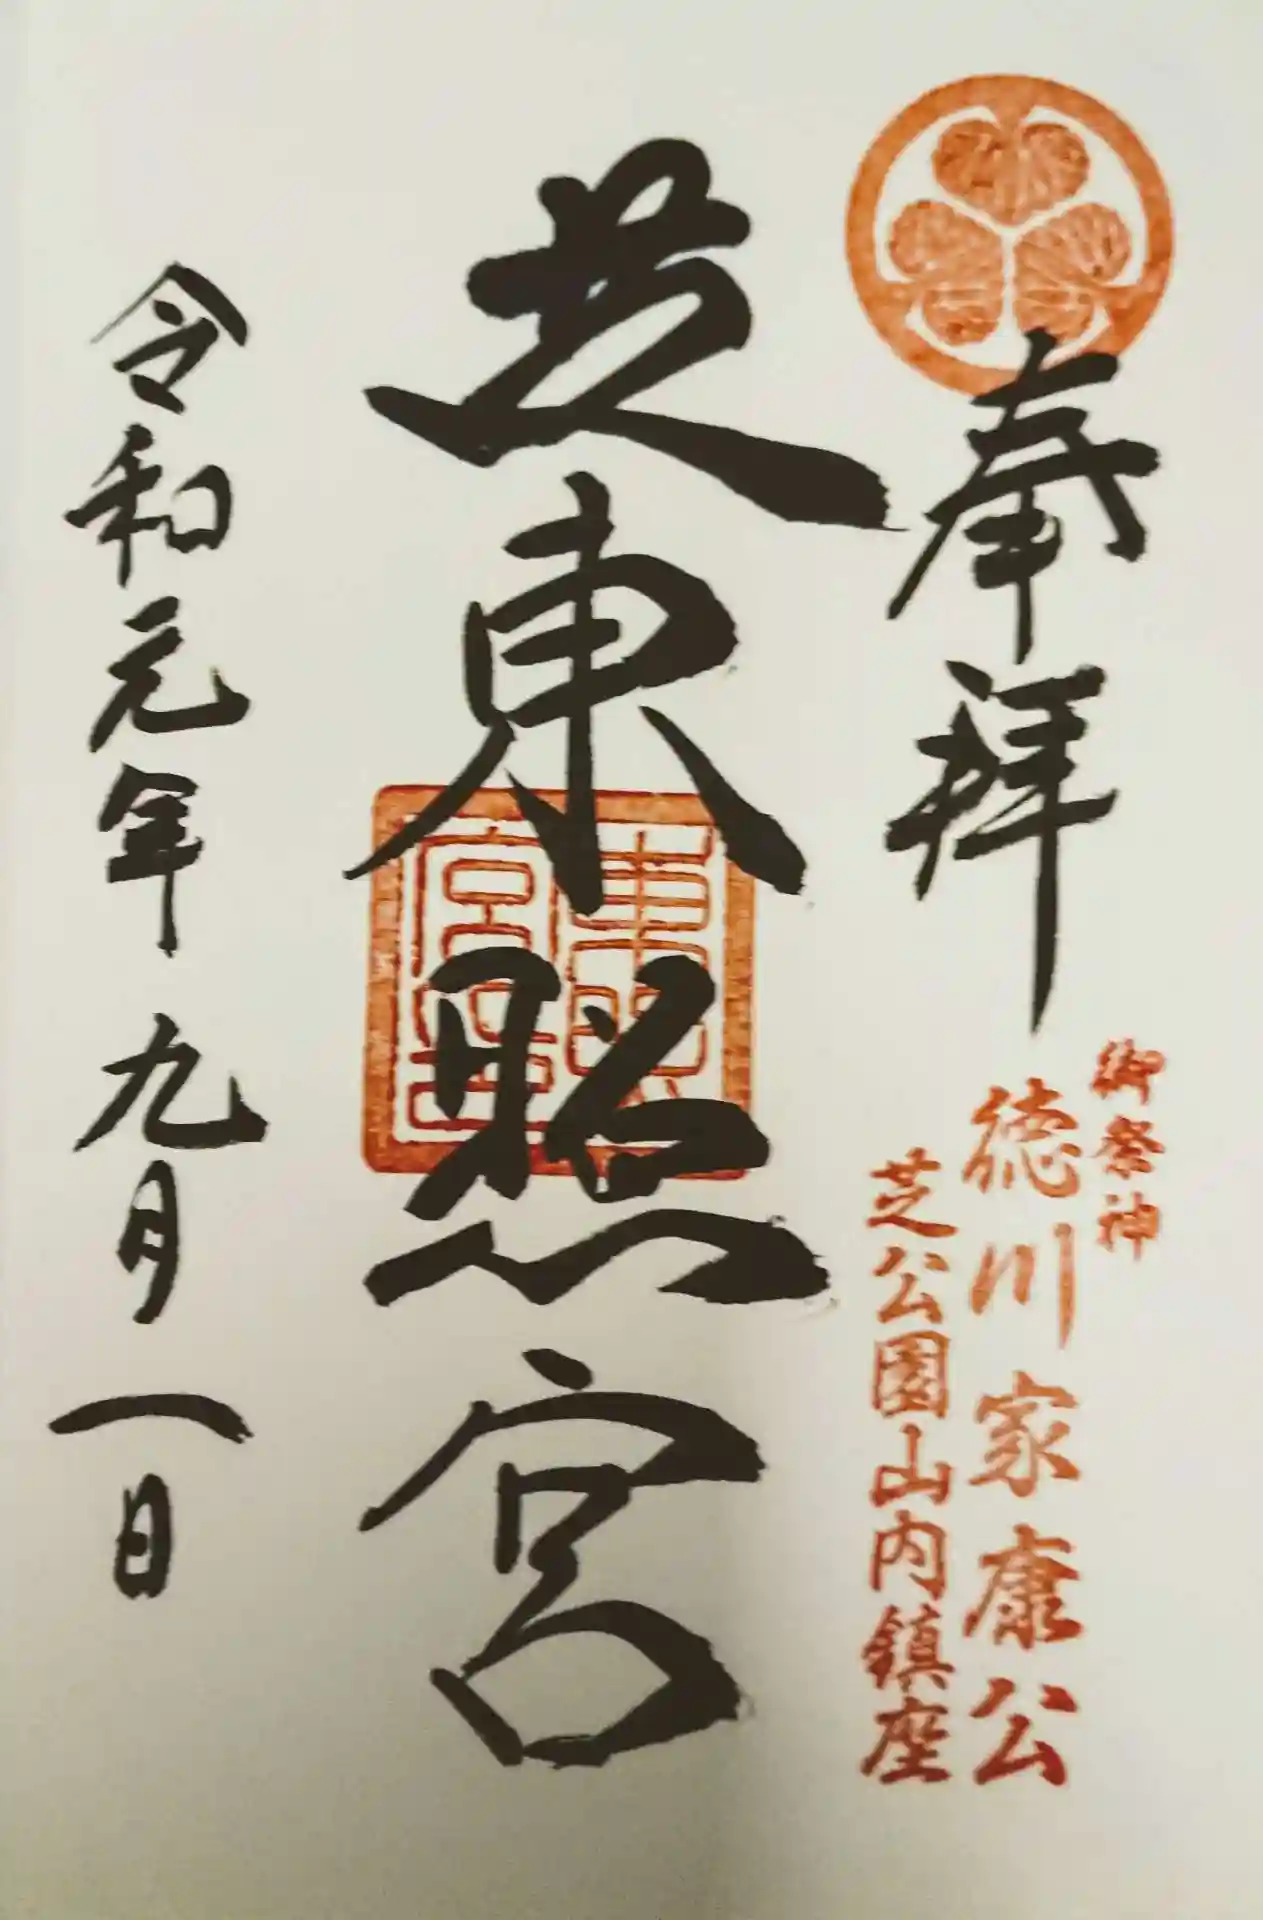 奉拝
御祭神
徳川家康公
芝公園山内鎮座
芝東照宮
東照
宮
令和元年九月一日